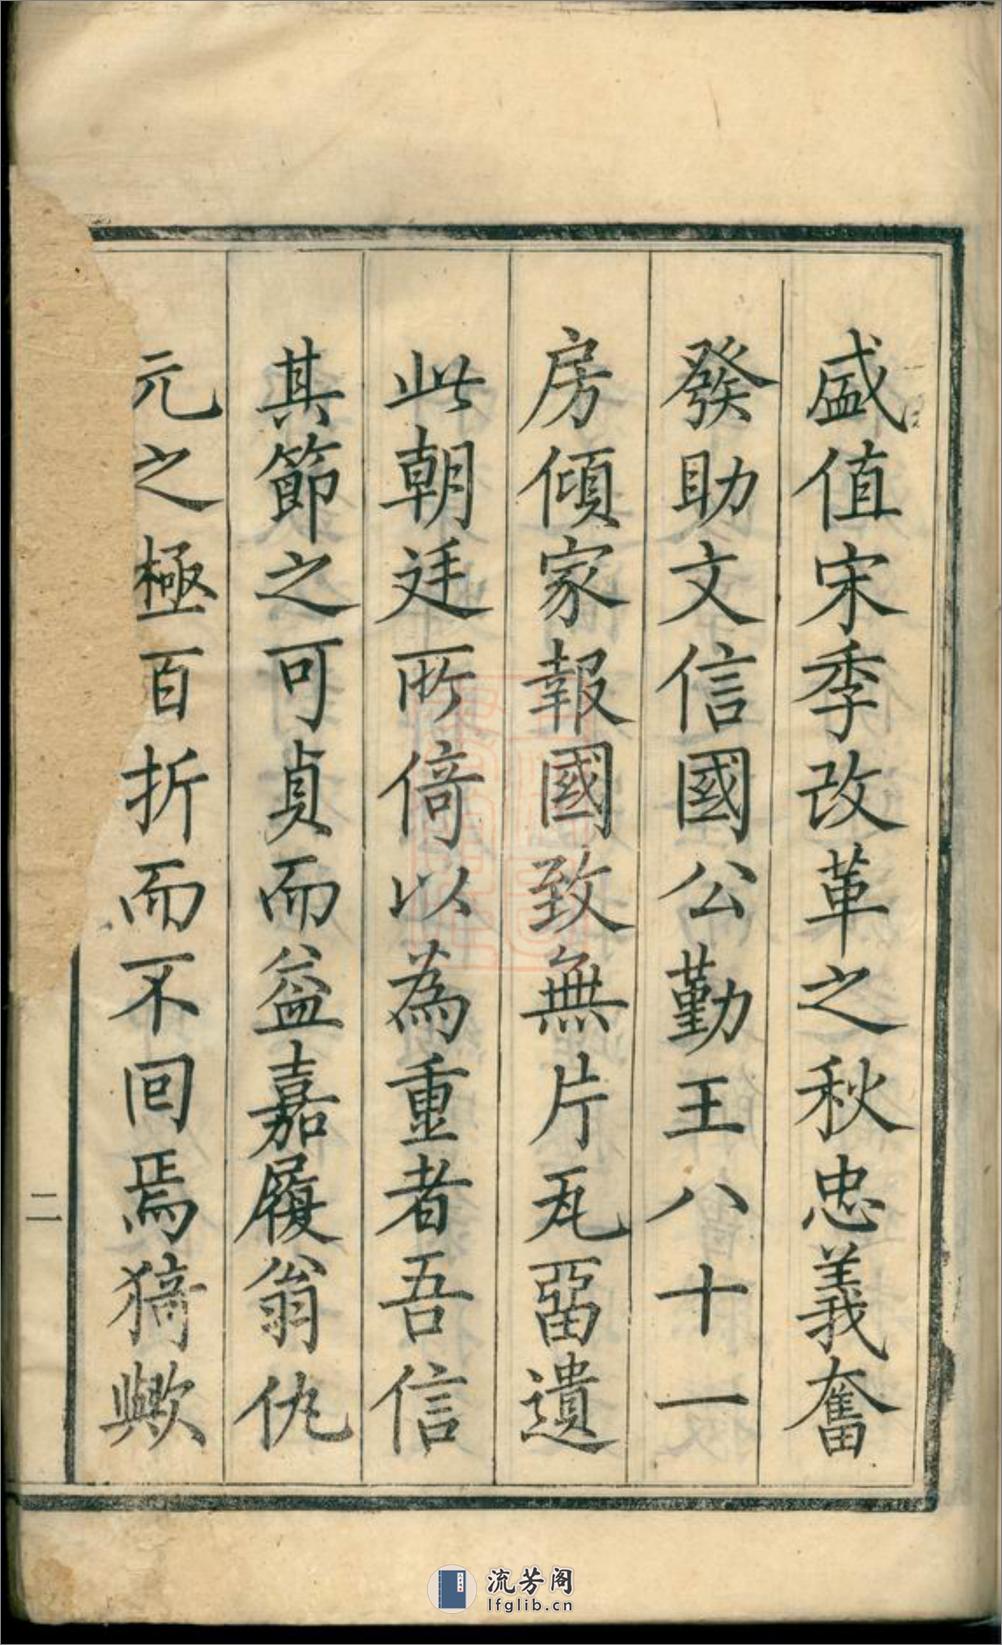 盛值宋季改革之秋忠義奮
發助文信國公勤王八十一
房傾家報國致無片瓦畱遺
此朝廷所倚以為重者吾信
其節之可貞而益嘉履翁仇
元之極百折而不回焉猗歟
二
流芳阁
lfglib.cn